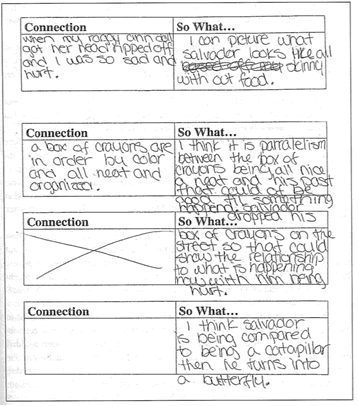 Connection So What...
when my raggy ann doll
got her head ripped off
and I was so sad and
hurt.
I can picture what
salvador looks like all
skinny
with out food.
Connection So What...
a box of crayons are
in order by color
and all neat and
organized.
I think it is parralelism
between the box of
crayons being all nice
a neat and his past
that could of be
good till something
happend salvador
Connection So What...
dropped his
box of crayons on the
street so that could
show the relationship
to what is happening
now with him being
hurt.
Connection So What...
I think salvador
is being compared
to being a catapillar
then he turns into
a butterfly.